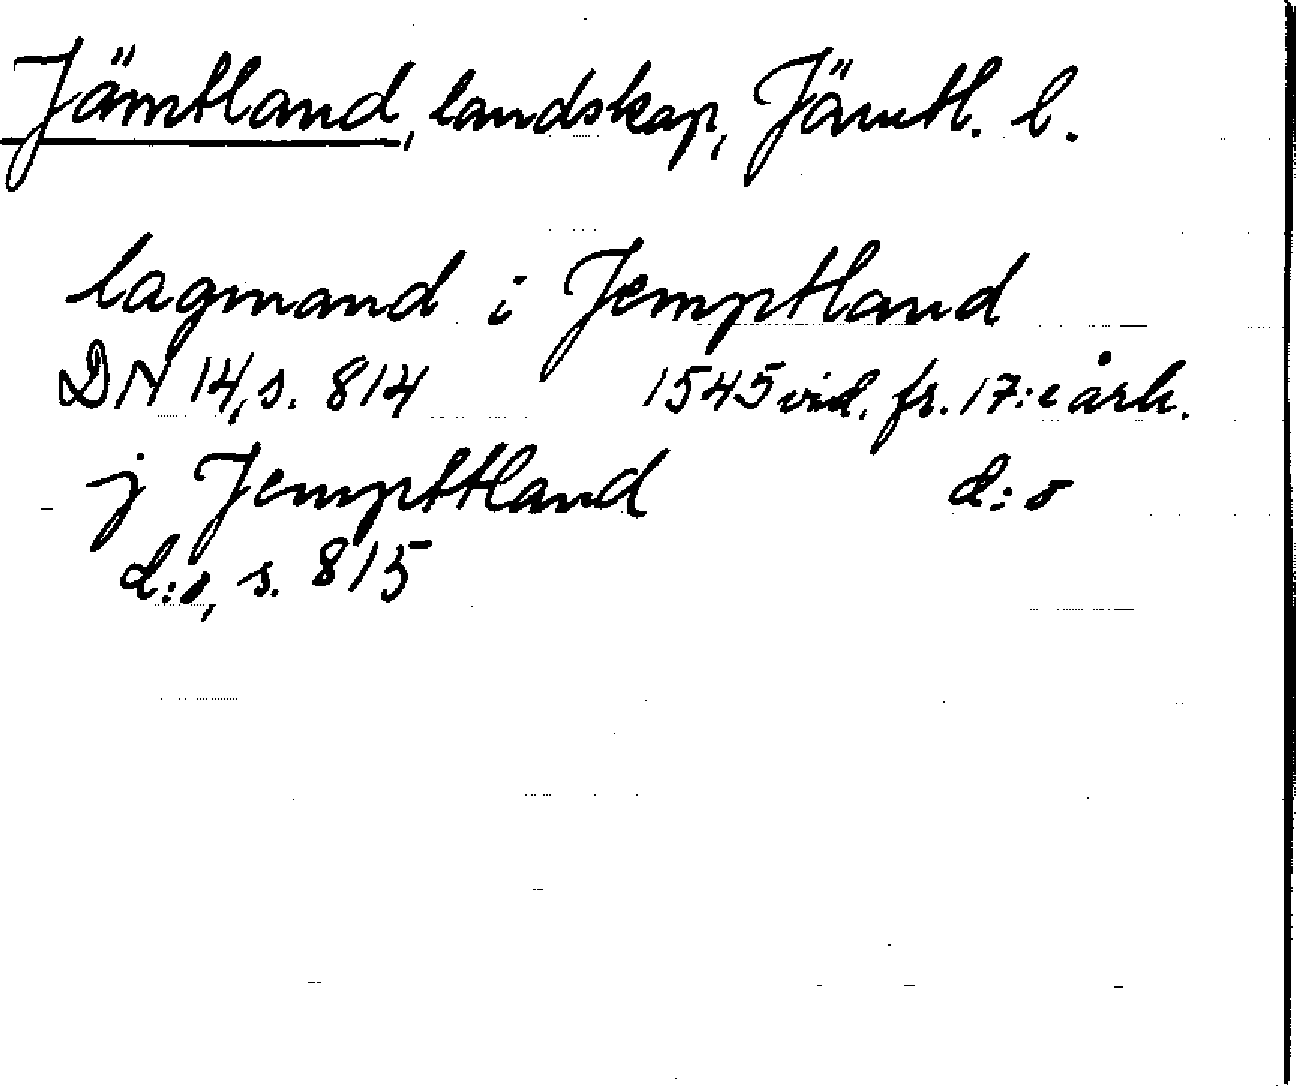 Jämtland, landskap, Jämtl. l.
lagmand i Jemptland
DN 14, s. 814 1545 vid. fr. 17:e årh.
j Jempttland d:o
d:o, s. 815